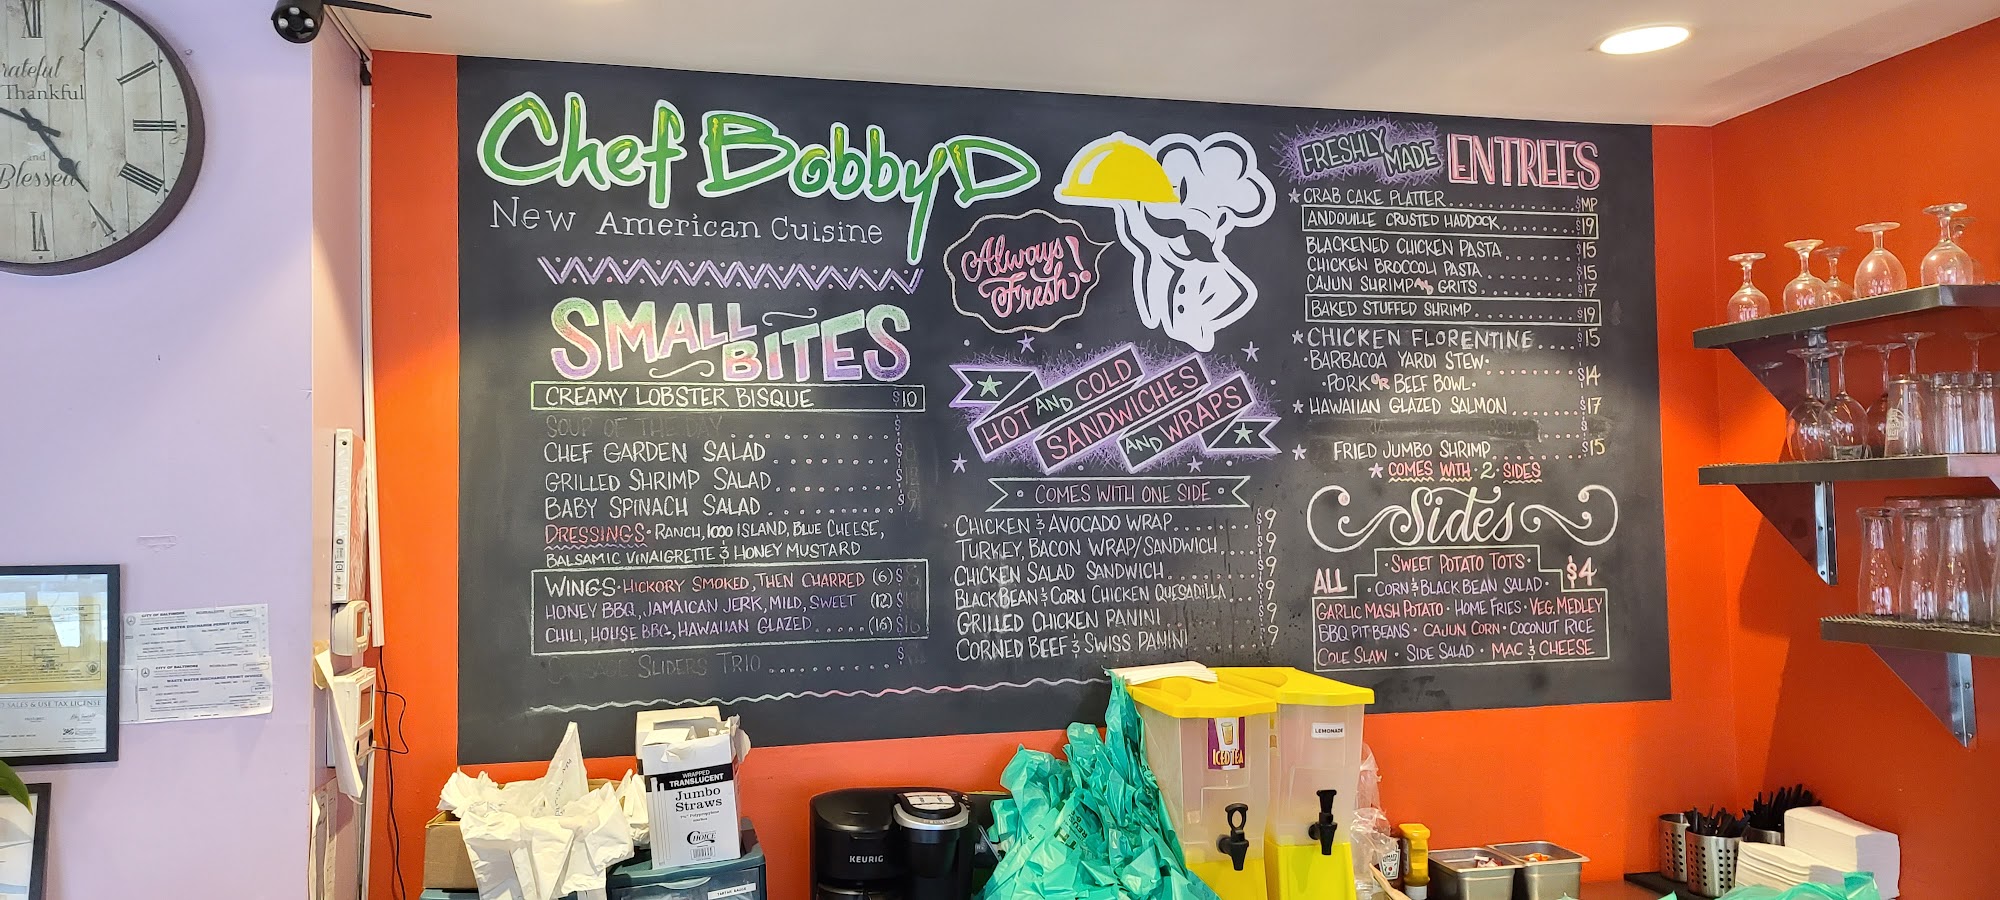 and
Thankful
Blessed
Chef Bobby D
New American Cuisine
SMALL BITES
CREAMY LOBSTER BISQUE $10
SOUP OF THE DAY
CHEF GARDEN SALAD
GRILLED SHRIMP SALAD
BABY SPINACH SALAD
DRESSINGS • RANCH, 1000 ISLAND, BLUE CHEESE,
BALSAMIC VINAIGRETTE & HONEY MUSTARD
WINGS • HICKORY SMOKED, THEN CHARRED (6) $
HONEY BBQ, JAMAICAN JERK, MILD, SWEET (12)
CHILI, HOUSE BBQ, HAWAIIAN GLAZED..... (16) $
SLIDERS TRIO
Always Fresh!
HOT AND COLD
SANDWICHES
AND WRAPS
• COMES WITH ONE SIDE •
CHICKEN & AVOCADO WRAP $9
TURKEY, BACON WRAP/SANDWICH $9
CHICKEN SALAD SANDWICH $9
BLACK BEAN & CORN CHICKEN QUESADILLA $9
GRILLED CHICKEN PANINI $9
CORNED BEEF & SWISS PANINI $9
FRESHLY MADE ENTREES
CRAB CAKE PLATTER $MP
ANDOUILLE CRUSTED HADDOCK $19
BLACKENED CHICKEN PASTA $15
CHICKEN BROCCOLI PASTA $15
CAJUN SHRIMP AND GRITS $17
BAKED STUFFED SHRIMP $19
CHICKEN FLORENTINE $15
• BARBACOA YARDI STEW •
• PORK OR BEEF BOWL • $14
HAWAIIAN GLAZED SALMON $17
FRIED JUMBO SHRIMP $15
COMES WITH • 2 • SIDES
Sides
ALL • SWEET POTATO TOTS • $4
• CORN & BLACK BEAN SALAD •
GARLIC MASH POTATO • HOME FRIES • VEG. MEDLEY
BBQ PIT BEANS • CAJUN CORN • COCONUT RICE
COLE SLAW • SIDE SALAD • MAC & CHEESE
CITY OF BALTIMORE
WASTE WATER DISCHARGE PERMIT INVOICE
CITY OF BALTIMORE
WASTE WATER DISCHARGE PERMIT INVOICE
SALES & USE TAX LICENSE
WRAPPED
TRANSLUCENT
Jumbo
Straws
CHOICE
TARTAR SAUCE
KEURIG
ICED TEA
LEMONADE